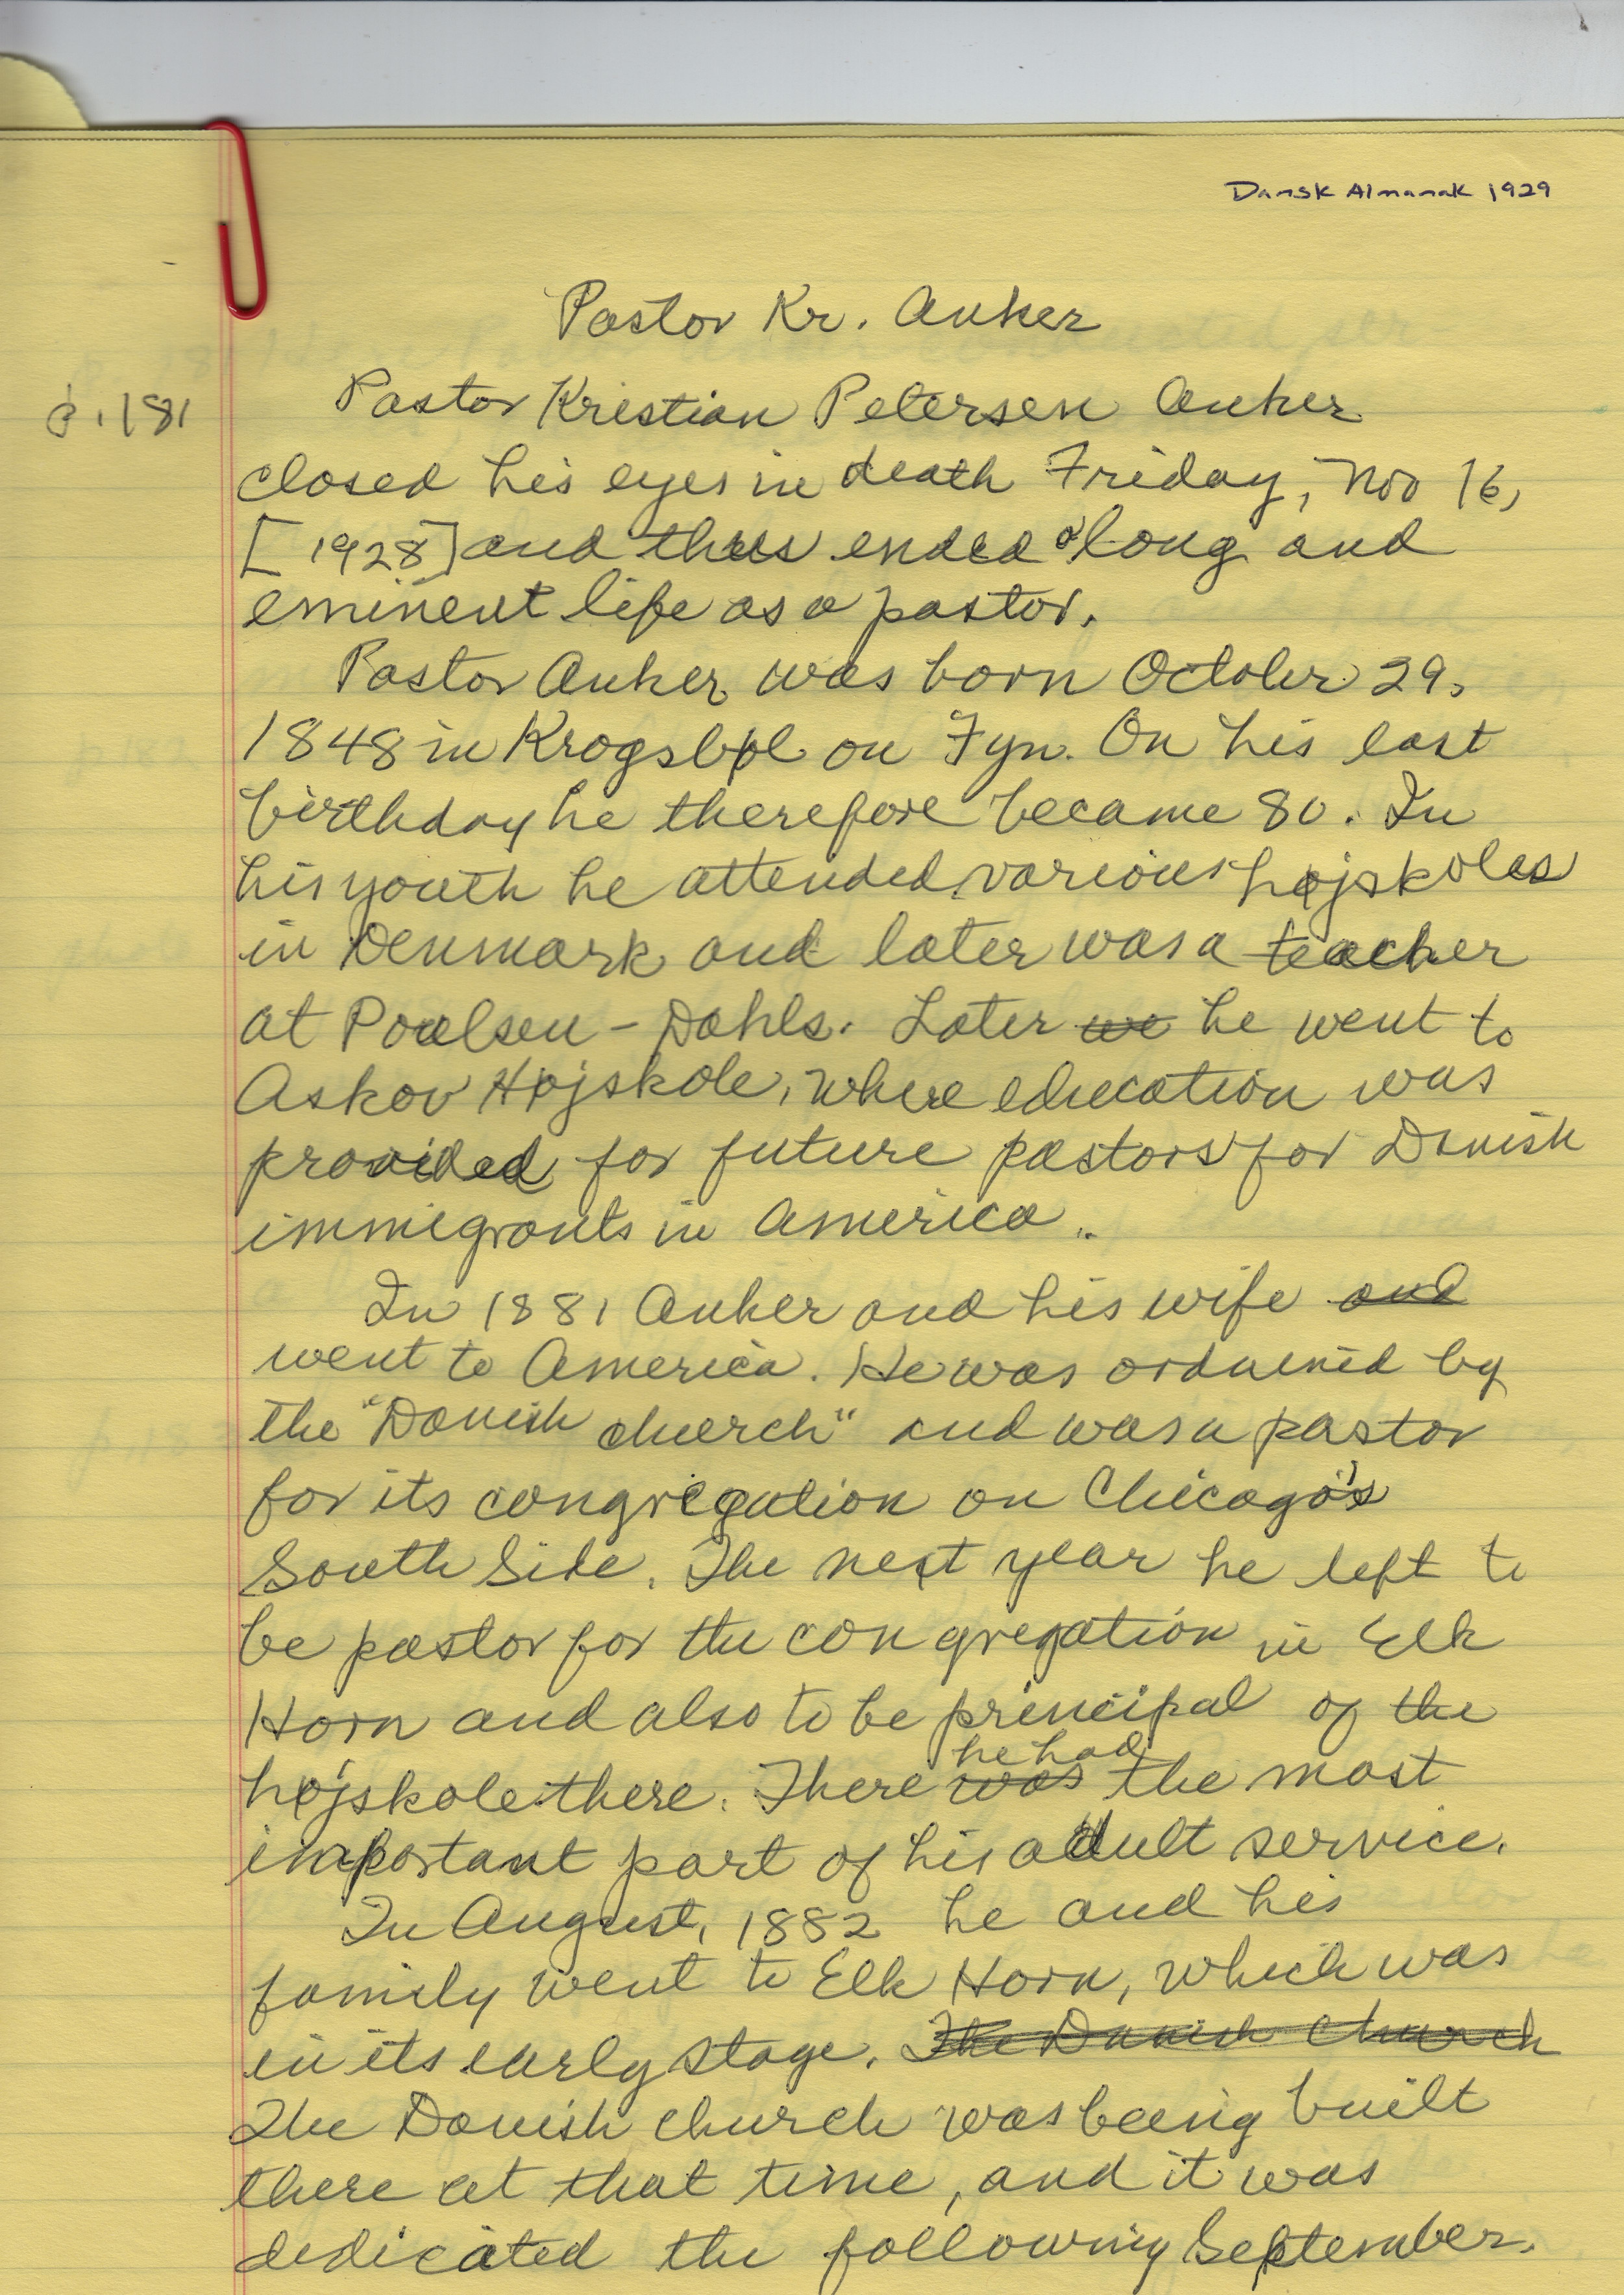 Dansk Almanak 1929
Pastor Kr. Anker
p. 181
Pastor Kristian Petersen Anker
closed his eyes in death Friday, Nov 16,
[1928] and thus ended a long and
eminent life as a pastor.
Pastor Anker was born October 29,
1848 in Krogsbøl on Fyn. On his last
birthday he therefore became 80. In
his youth he attended various højskoles
in Denmark and later was a teacher
at Poulsen-Dahls. Later we he went to
Askov Højskole, where education was
provided for future pastors for Danish
immigrants in America.
In 1881 Anker and his wife and
went to America. He was ordained by
the "Danish church" and was a pastor
for its congregation on Chicago's
South Side. The next year he left to
be pastor for the congregation in Elk
Horn and also to be principal of the
he had
højskole there. There was the most
important part of his adult service.
In August, 1882 he and his
family went to Elk Horn, which was
in its early stage. The Danish Church
The Danish church was being built
there at that time, and it was
dedicated the following September.